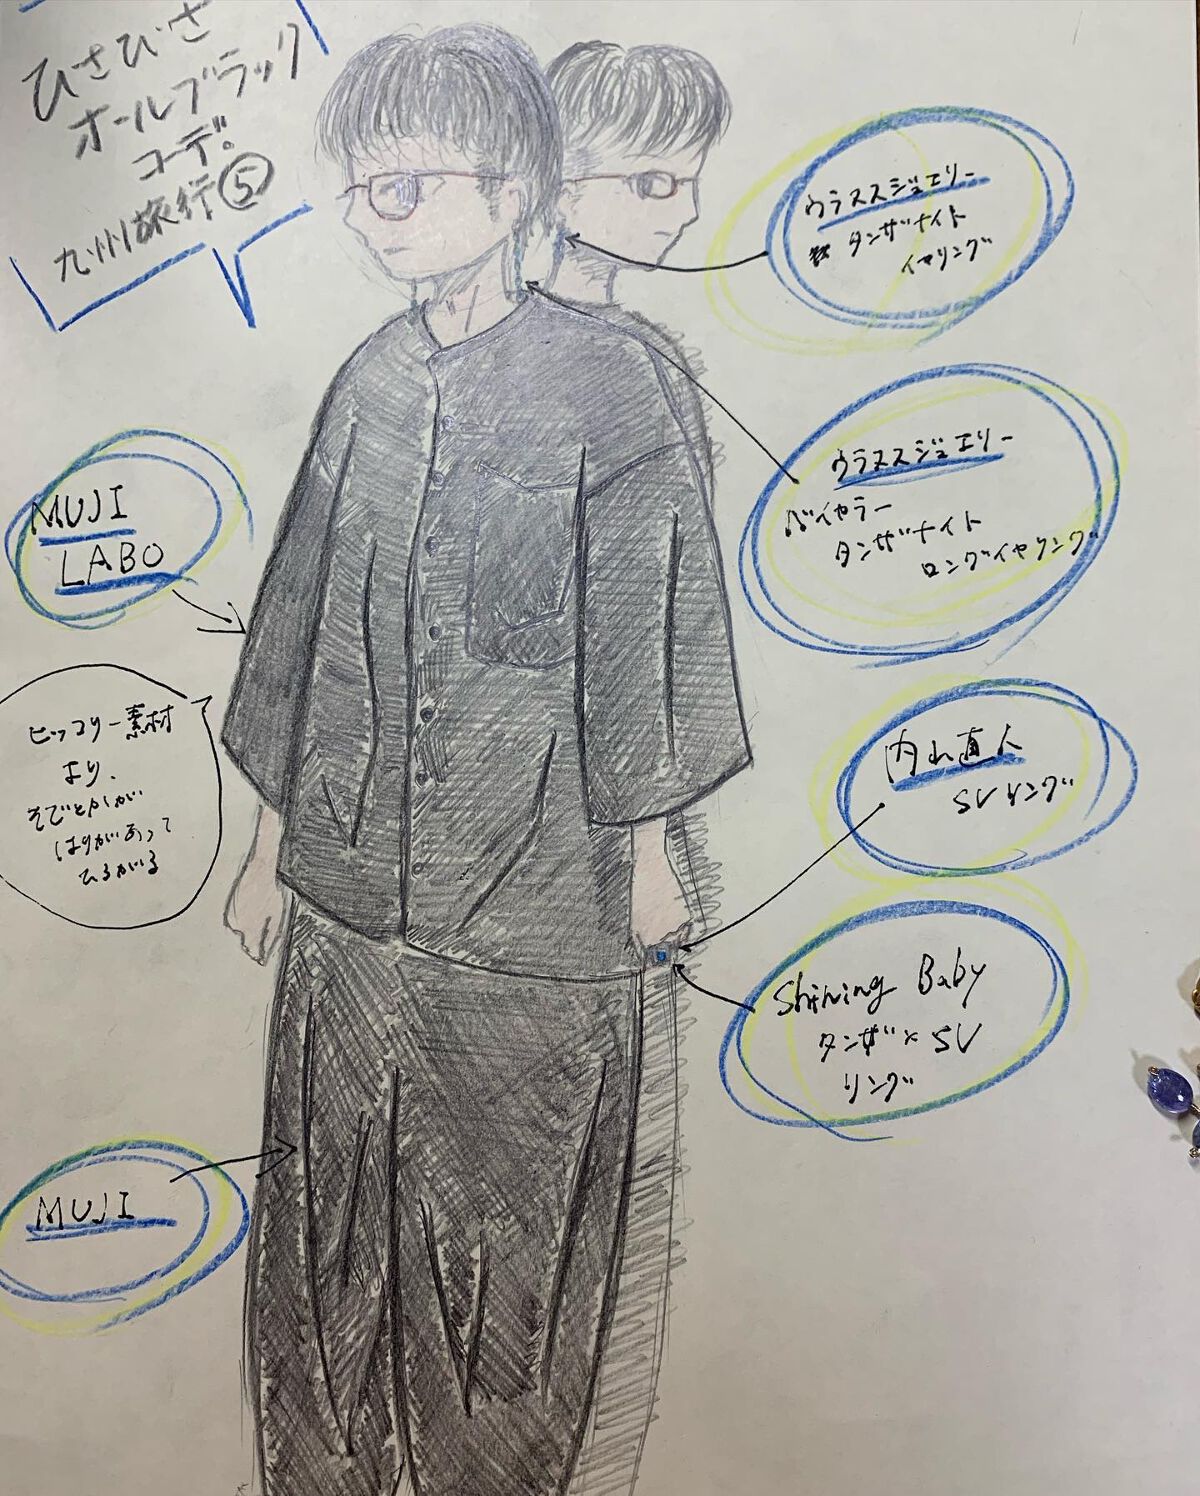 ひさびさ
オールブラック
コーデ。
九州旅行⑤
ウラススジュエリー
タンザナイト
イヤリング
ウラススジュエリー
バイカラー
タンザナイト
ロングイヤリング
MUJI
LABO
ヒッコリー素材
より、
そでとかが
はりがあって
ひろがる
直人
SVリング
Shining Baby
タンザ×SV
リング
MUJI